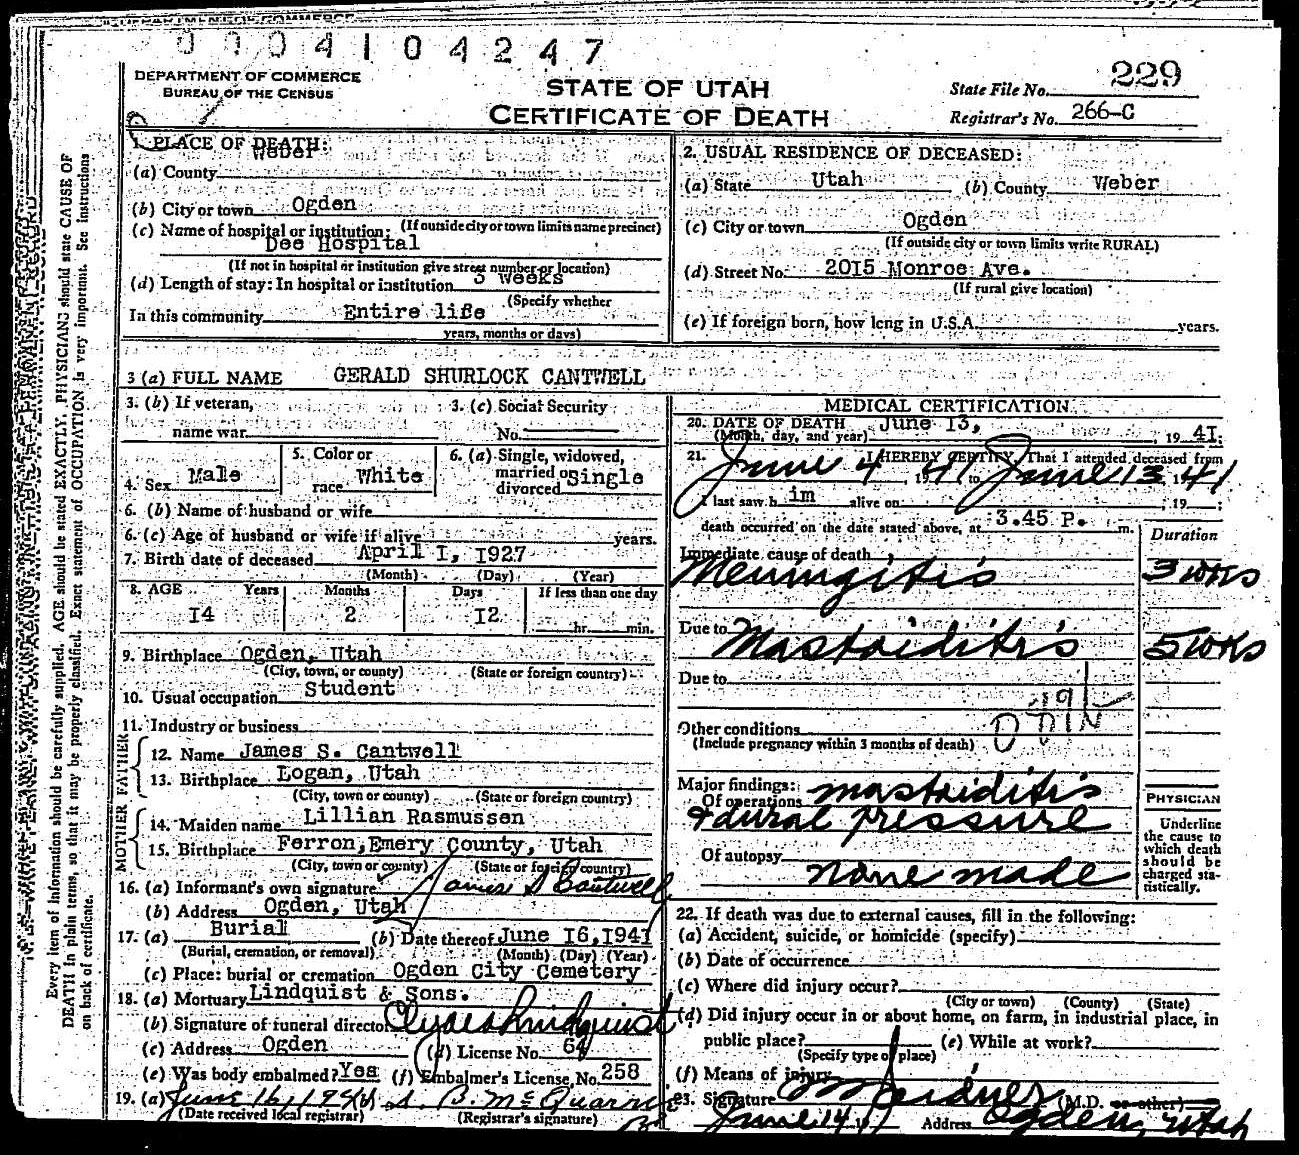 0004104247
DEPARTMENT OF COMMERCE
BUREAU OF THE CENSUS
STATE OF UTAH
CERTIFICATE OF DEATH
State File No. 229
Registrar's No. 266-C
1. PLACE OF DEATH:
(a) County Weber
(b) City or town Ogden
(If outside city or town limits name precinct)
(c) Name of hospital or institution:
Dee Hospital
(If not in hospital or institution give street number or location)
(d) Length of stay: In hospital or institution 3 weeks
(Specify whether
In this community Entire life
years, months or days)
2. USUAL RESIDENCE OF DECEASED:
(a) State Utah (b) County Weber
(c) City or town Ogden
(If outside city or town limits write RURAL)
(d) Street No. 2015 Monroe Ave.
(If rural give location)
(e) If foreign born, how long in U.S.A. years.
3 (a) FULL NAME GERALD SHURLOCK CANTWELL
3. (b) If veteran, name war
3. (c) Social Security No.
4. Sex Male
5. Color or race White
6. (a) Single, widowed, married or divorced Single
6. (b) Name of husband or wife
6. (c) Age of husband or wife if alive years.
7. Birth date of deceased April 1, 1927
(Month) (Day) (Year)
8. AGE Years Months Days If less than one day
14 2 12 hr. min.
9. Birthplace Ogden, Utah
(City, town, or county) (State or foreign country)
10. Usual occupation Student
11. Industry or business
FATHER
12. Name James S. Cantwell
13. Birthplace Logan, Utah
(City, town or county) (State or foreign country)
MOTHER
14. Maiden name Lillian Rasmussen
15. Birthplace Ferron, Emery County, Utah
(City, town or county) (State or foreign country)
16. (a) Informant's own signature James S Cantwell
(b) Address Ogden, Utah
17. (a) Burial (b) Date thereof June 16, 1941
(Burial, cremation, or removal) (Month) (Day) (Year)
(c) Place: burial or cremation Ogden City Cemetery
18. (a) Mortuary Lindquist & Sons.
(b) Signature of funeral director Clyde Lindquist
(c) Address Ogden (d) License No. 64
(e) Was body embalmed? Yes (f) Embalmer's License No. 258
19. (a) June 16, 1941 B. McQuarrie
(Date received local registrar) (Registrar's signature)
MEDICAL CERTIFICATION
20. DATE OF DEATH
(Month, day, and year) June 13, 19 41.
21. I HEREBY CERTIFY, That I attended deceased from
June 4, 1941 to June 13, 1941
I last saw h im alive on , 19 ;
death occurred on the date stated above, at 3.45 P. m.
Duration
Immediate cause of death
Meningitis 3 wks
Due to Mastoiditis 5 wks
Due to
Other conditions
(Include pregnancy within 3 months of death)
Major findings:
Of operations mastoiditis
& dural pressure
Of autopsy none made
PHYSICIAN
Underline
the cause to
which death
should be
charged sta-
tistically.
22. If death was due to external causes, fill in the following:
(a) Accident, suicide, or homicide (specify)
(b) Date of occurrence
(c) Where did injury occur?
(City or town) (County) (State)
(d) Did injury occur in or about home, on farm, in industrial place, in
public place? (e) While at work?
(Specify type of place)
(f) Means of injury
23. Signature (M.D. or other)
June 14 Address Ogden, Utah
Every item of information should be carefully supplied. AGE should be stated EXACTLY. PHYSICIANS should state CAUSE OF
DEATH in plain terms, so that it may be properly classified. Exact statement of OCCUPATION is very important. See instructions
on back of certificate.